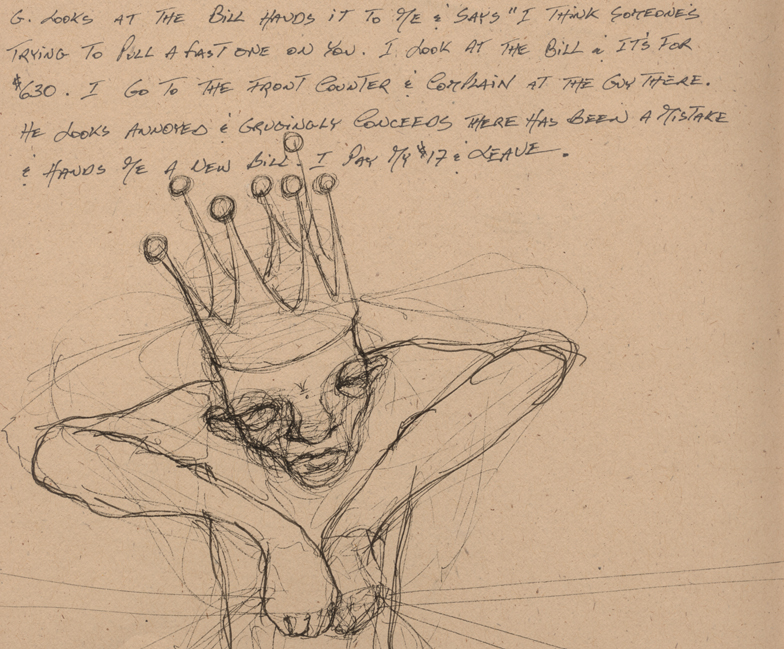 G. LOOKS AT THE BILL HANDS IT TO ME & SAYS "I THINK SOMEONE'S
TRYING TO PULL A FAST ONE ON YOU. I LOOK AT THE BILL & IT'S FOR
$630. I GO TO THE FRONT COUNTER & COMPLAIN AT THE GUY THERE.
HE LOOKS ANNOYED & GRUGINGLY CONCEEDS THERE HAS BEEN A MISTAKE
& HANDS ME A NEW BILL. I PAY MY $17 & LEAVE.